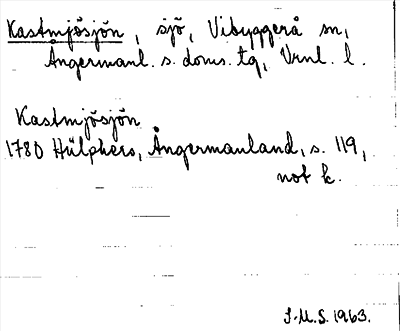 Kastmjösjön, sjö, Vibyggerå sn,
Ångermanl. s. doms. tg, Vrnl. l.
Kastmjösjön
1780 Hülphers, Ångermanland, s. 119,
not k.
J.M.S. 1963.